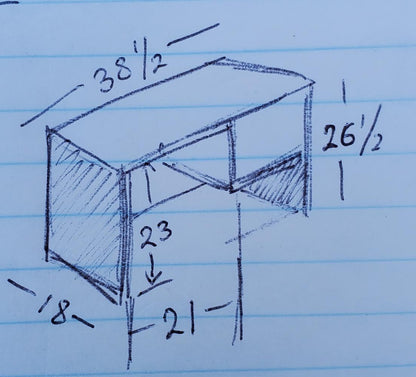 38 1/2
26 1/2
23
18
21